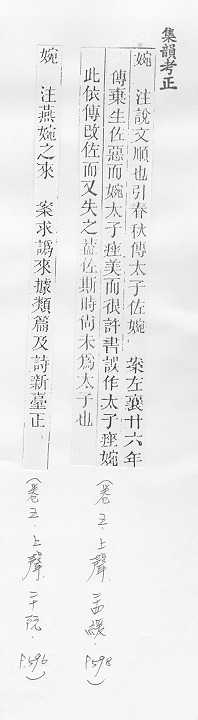 集韻考正
婉　注說文順也引春秋傳太子佐婉　案左襄廿六年
傳棄生佐惡而婉太子痤美而很許書誤作太子痤婉
此依傳改佐而又失之葢佐斯時尚未為太子也
（卷五·上聲二十四緩·P.598）
婉　注燕婉之來　案求譌來據類篇及詩新臺正
（卷五·上聲二十阮·P.596）